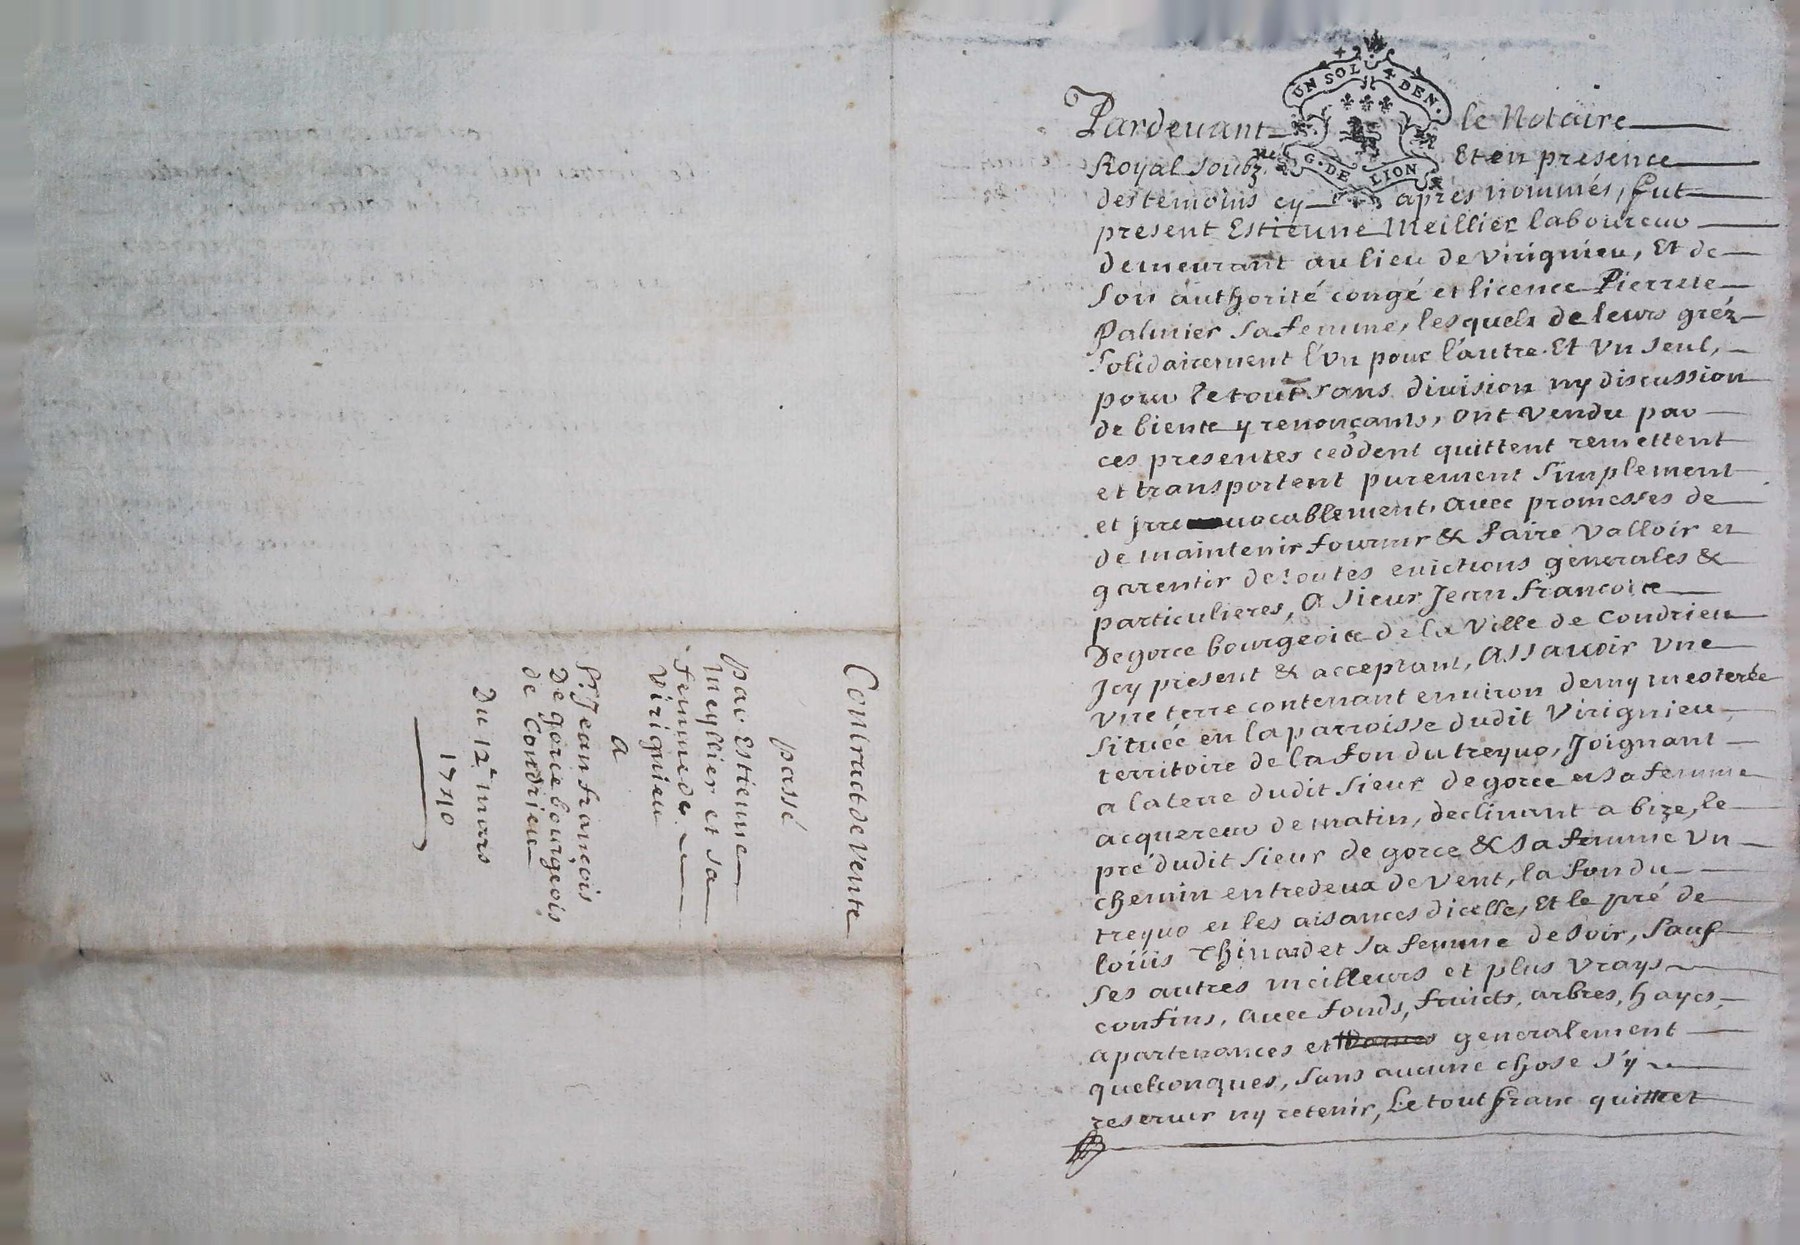 Contract de Vente
passé
par Estienne
Meyllier et sa
femme de
Virignieu
a
Sr. Jean françois
De gorce bourgeois
de Condrieu
Du 12e mars
1710
UN SOL 4 DEN.
G. DE LION
Pardevant le Notaire
Royal soubzné Et en presence
des temoins cy apres nommés, fut
present Estienne Meillier laboureur
demeurant au lieu de Virignieu, Et de
son authorité congé et licence Pierrete
Palmier sa femme, lesquels de leurs gréz
solidairement l'un pour l'autre Et Un seul,
pour le tout sans division ny discussion
de biens y renonçants, ont vendu par
ces presentes ceddent quittent remettent
et transportent purement simplement
et irrevocablement, avec promesses de
de maintenir fournir & faire valloir et
garentir de toutes evictions generales &
particulieres, A sieur Jean françois
De gorce bourgeois de la Ville de Condrieu
Jcy present & acceptant, Assavoir Vne
Vne terre contenant environ demy mesterée
située en la parroisse dudit Virignieu,
territoire de la fon du treyuo, Joignant
a la terre dudit sieur de gorce et sa femme
acquereur de matin, declinant a bize, le
pré dudit sieur de gorce & sa femme Vn
chemin entredeux de Vent, la fon du
treyuo et les aisances d'icelle, Et le pré de
loüis Thinard et sa femme de soir, sauf
ses autres meilleurs et plus Vrays
confins, avec fonds, fruicts, arbres, hayes,
apartenances et generalement
quelconques, sans aucune chose s'y
reserver ny retenir, Le tout franc quitte et